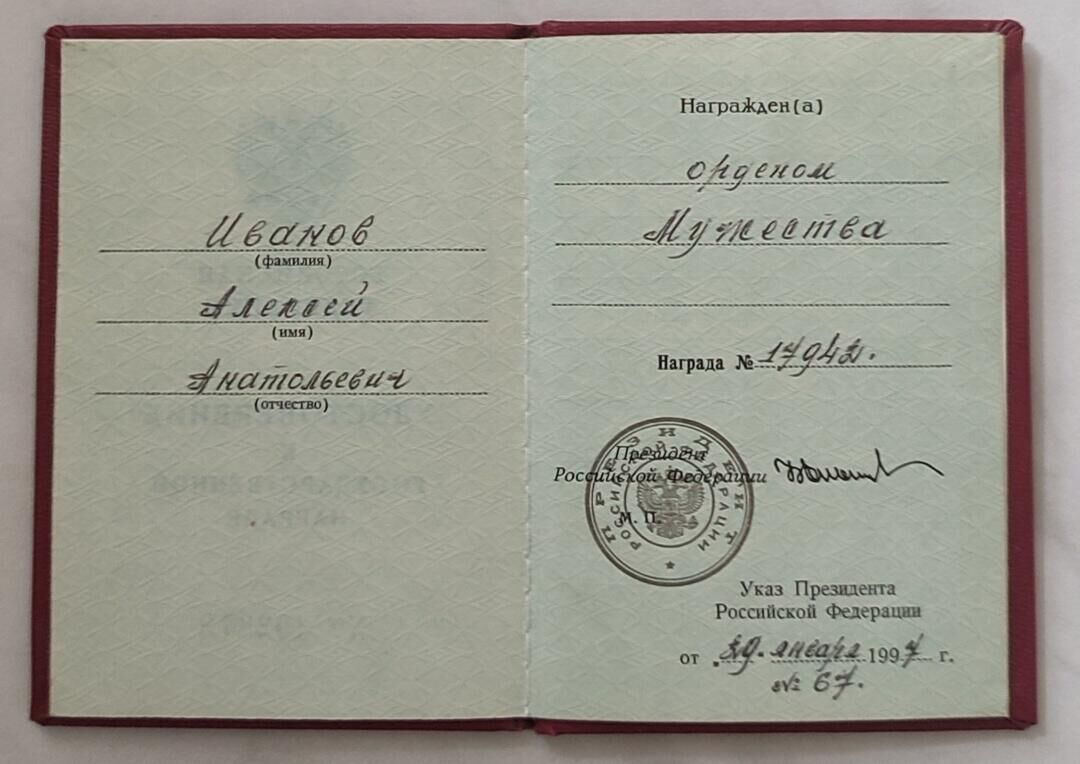 Иванов
(фамилия)
Алексей
(имя)
Анатольевич
(отчество)
Награжден(а)
орденом
Мужества
Награда № 17942.
Президент
Российской Федерации
М. П.
ПРЕЗИДЕНТ
РОССИЙСКОЙ ФЕДЕРАЦИИ
Указ Президента
Российской Федерации
от января 1997 г.
№ 67.